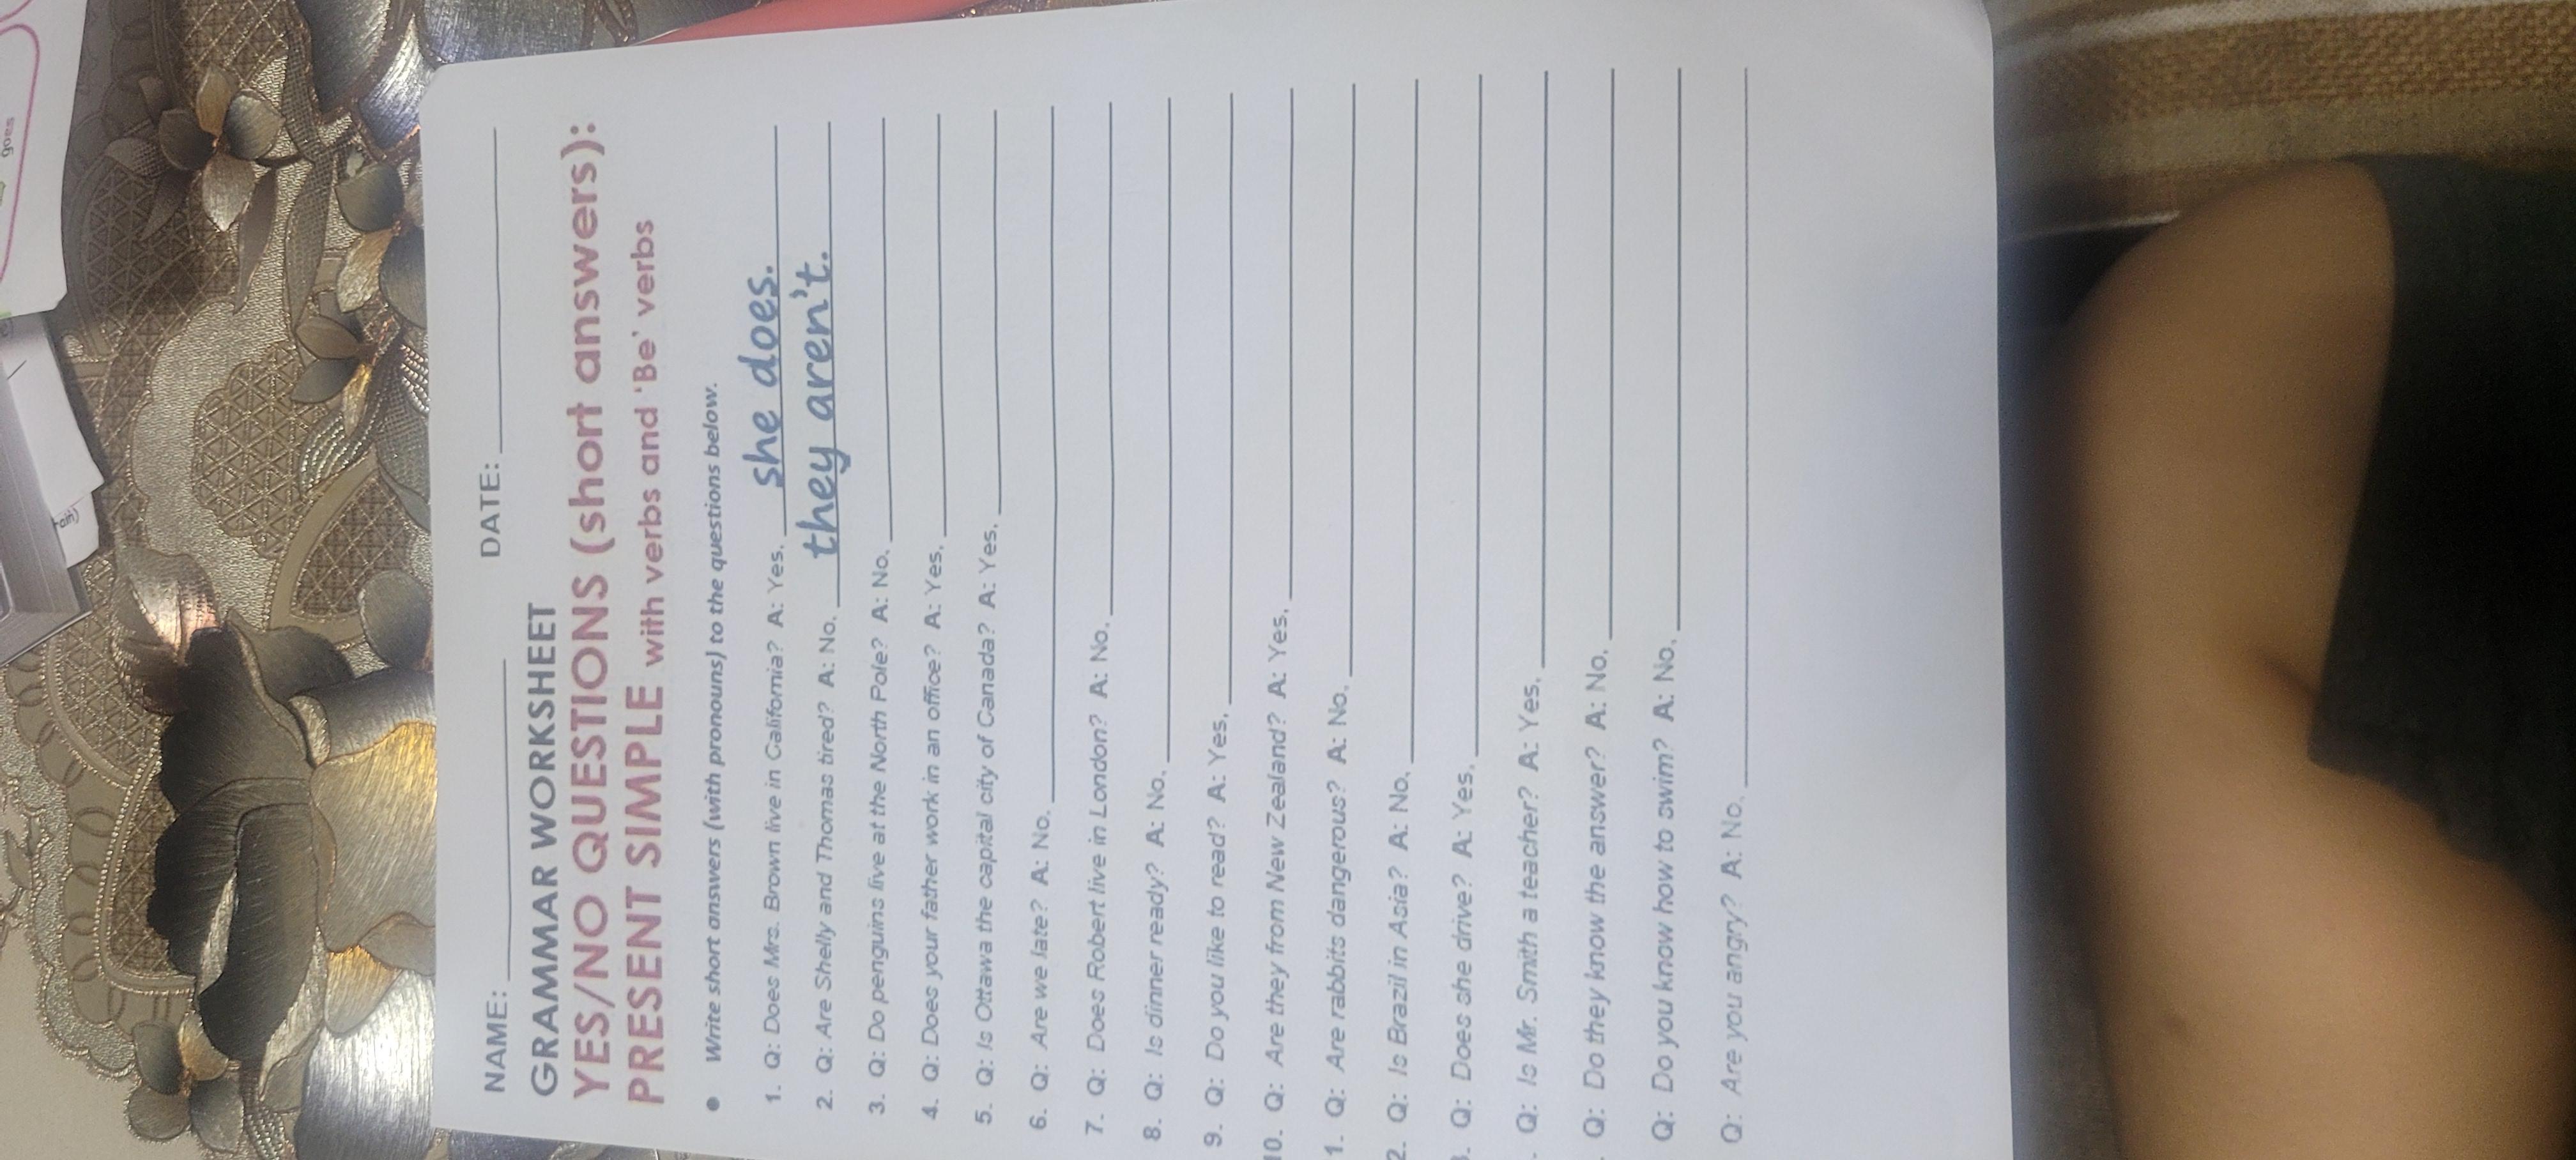 NAME: DATE:
GRAMMAR WORKSHEET
YES/NO QUESTIONS (short answers):
PRESENT SIMPLE with verbs and 'Be' verbs
• Write short answers (with pronouns) to the questions below.
1. Q: Does Mrs. Brown live in California? A: Yes, she does.
2. Q: Are Shelly and Thomas tired? A: No, they aren't.
3. Q: Do penguins live at the North Pole? A: No,
4. Q: Does your father work in an office? A: Yes,
5. Q: Is Ottawa the capital city of Canada? A: Yes,
6. Q: Are we late? A: No,
7. Q: Does Robert live in London? A: No,
8. Q: Is dinner ready? A: No,
9. Q: Do you like to read? A: Yes,
10. Q: Are they from New Zealand? A: Yes,
1. Q: Are rabbits dangerous? A: No,
2. Q: Is Brazil in Asia? A: No,
. Q: Does she drive? A: Yes,
. Q: Is Mr. Smith a teacher? A: Yes,
. Q: Do they know the answer? A: No,
Q: Do you know how to swim? A: No,
Q: Are you angry? A: No,
goes